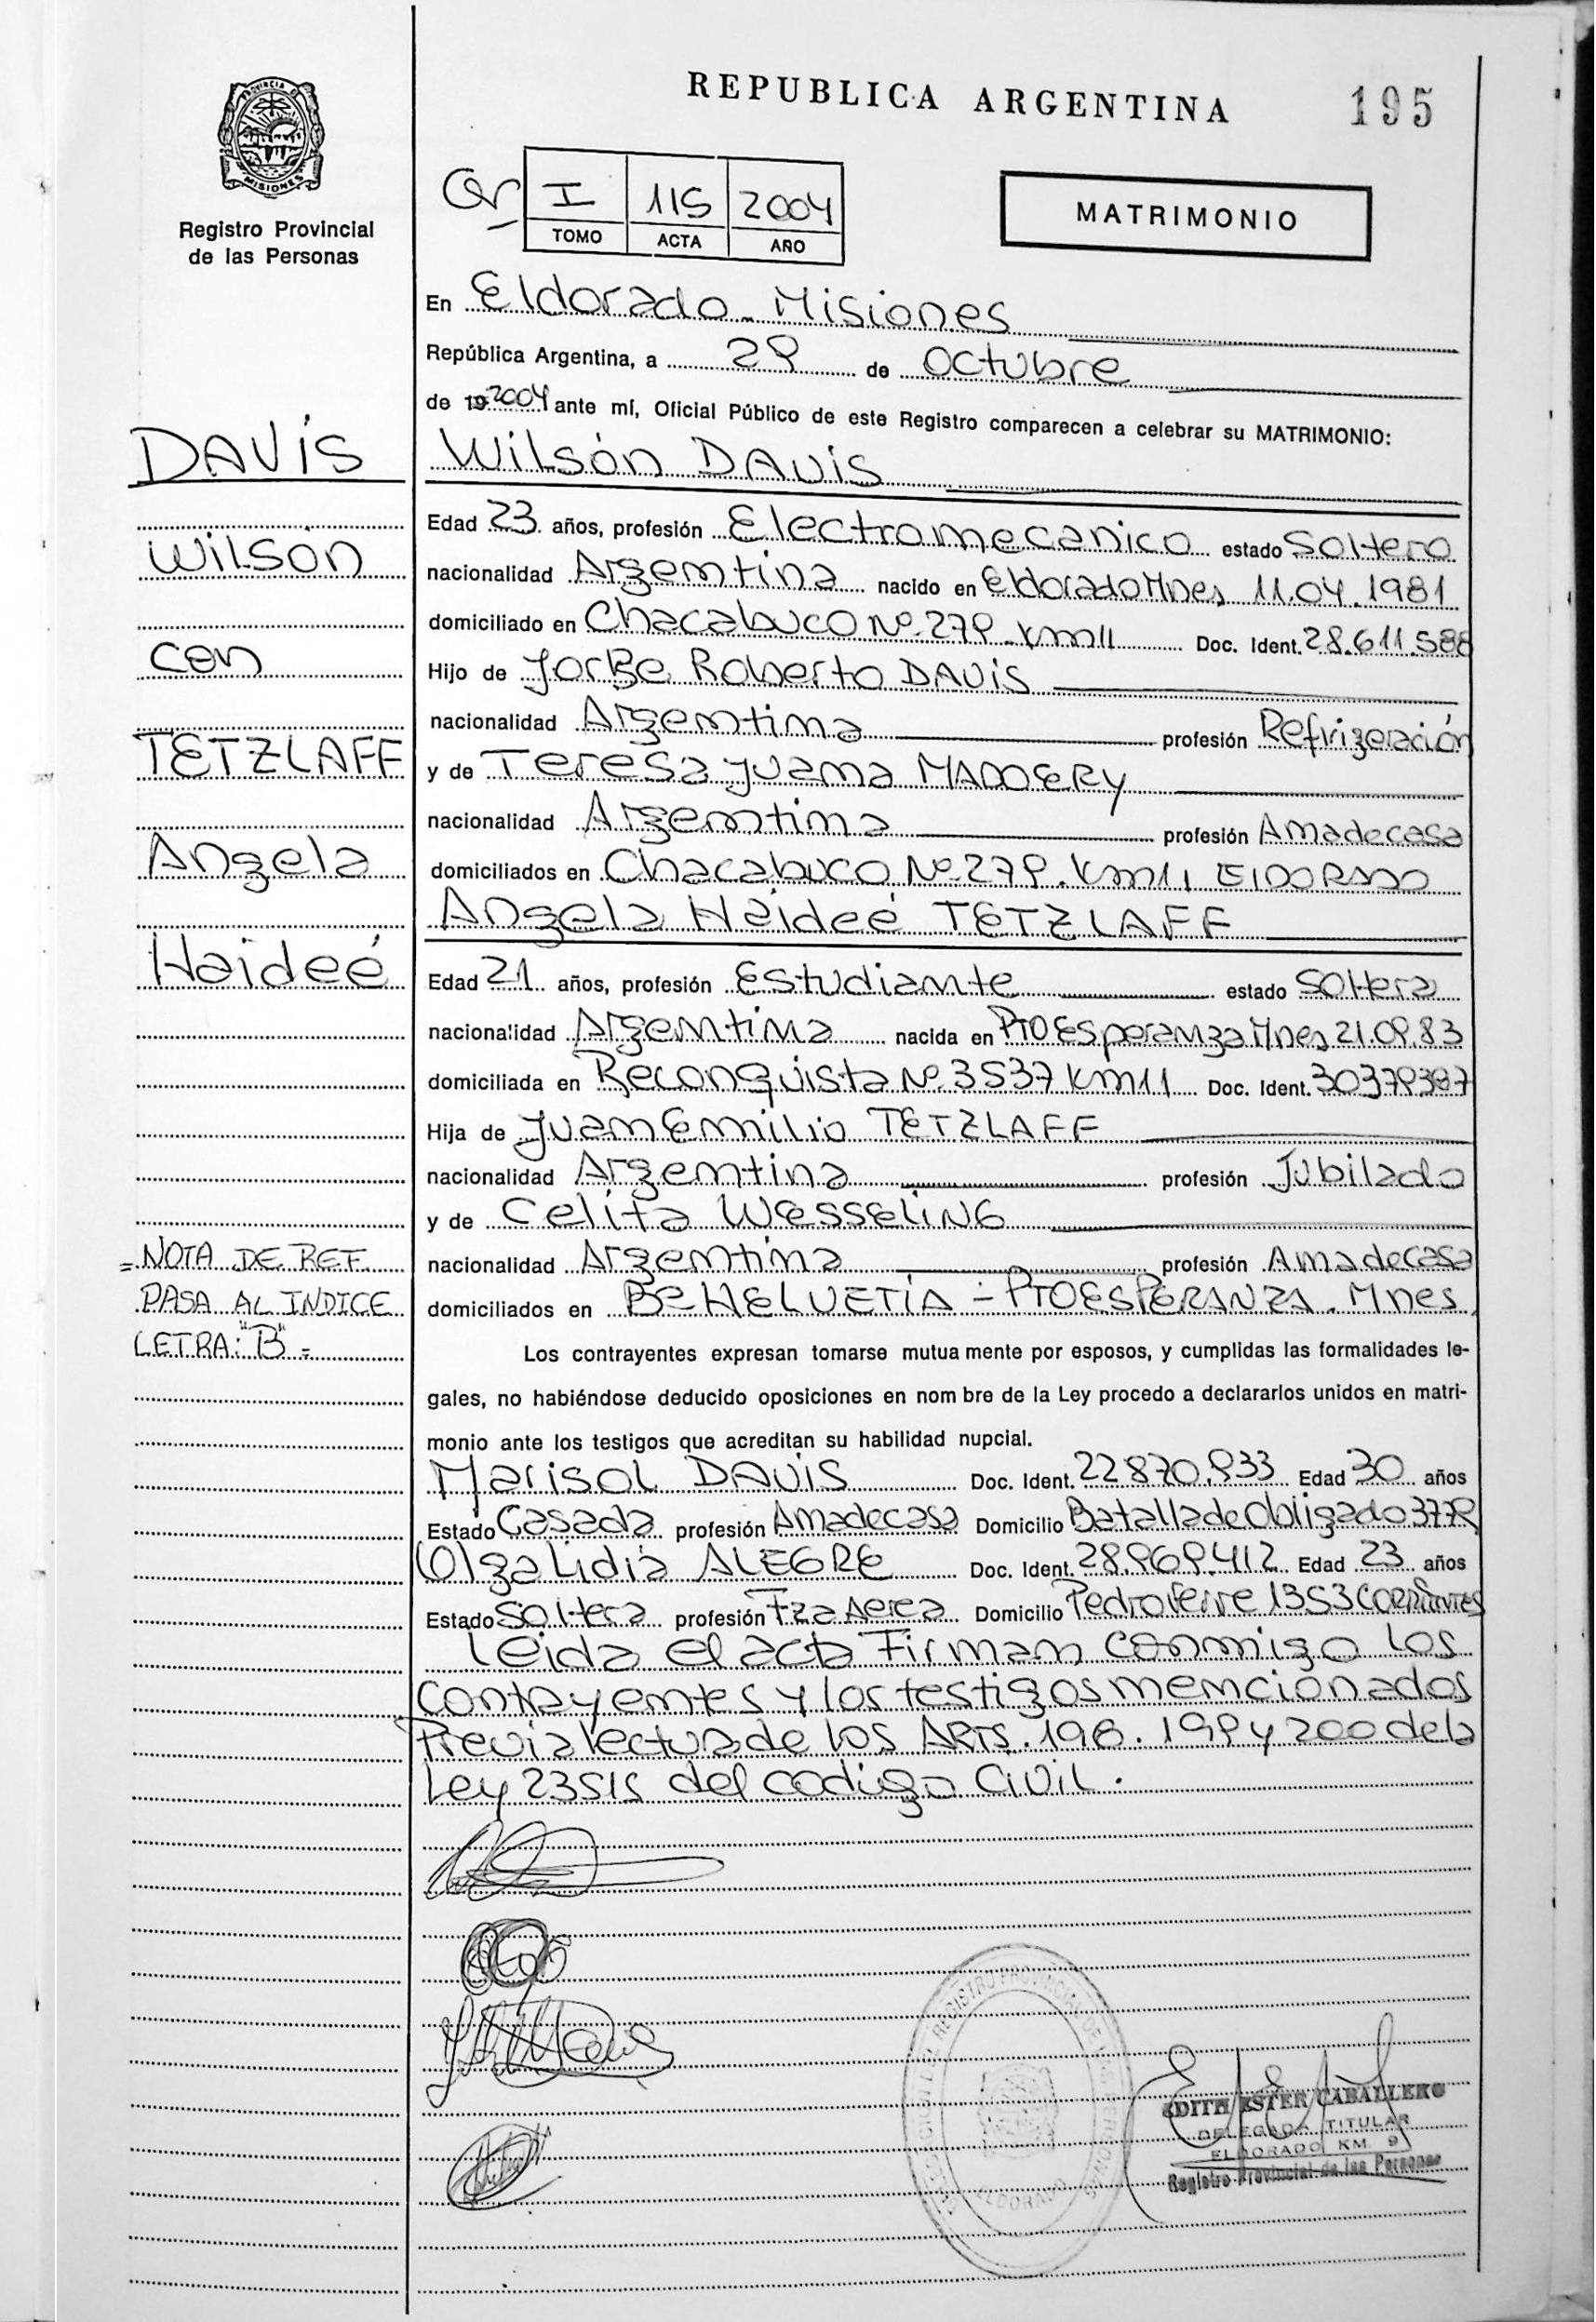 REPUBLICA ARGENTINA
195
PROVINCIA DE
MISIONES
Registro Provincial
de las Personas
I 115 2004
TOMO ACTA AÑO
MATRIMONIO
En Eldorado - Misiones
República Argentina, a 29 de Octubre
de 19 2004 ante mí, Oficial Público de este Registro comparecen a celebrar su MATRIMONIO:
DAVIS
Wilsón DAVIS
Edad 23 años, profesión Electromecanico estado Soltero
Wilsón
nacionalidad Argentina nacido en Eldorado Mnes, 11.04.1981
domiciliado en Chacabuco Nº 279. Km 11 Doc. Ident. 28.611.588
con
Hijo de Jorge Roberto DAVIS
nacionalidad Argentina profesión Refrigeración
TETZLAFF
y de Teresa Juana MADDERY
nacionalidad Argentina profesión Ama de casa
Angela
domiciliados en Chacabuco Nº 279. Km 11 ElDORADO
Angela Haideé TETZLAFF
Haideé
Edad 21 años, profesión Estudiante estado Soltera
nacionalidad Argentina nacida en Pto Esperanza Mnes, 21.09.83
domiciliada en Reconquista Nº 3537 Km 11 Doc. Ident. 30379387
Hija de Juan Emilio TETZLAFF
nacionalidad Argentina profesión Jubilado
y de Celita WESSELING
= NOTA DE REF.
nacionalidad Argentina profesión Ama de casa
PASA AL INDICE
domiciliados en Bº HELVETIA - PTO ESPERANZA. Mnes,
LETRA: "B" =
Los contrayentes expresan tomarse mutua mente por esposos, y cumplidas las formalidades le-
gales, no habiéndose deducido oposiciones en nom bre de la Ley procedo a declararlos unidos en matri-
monio ante los testigos que acreditan su habilidad nupcial.
Marisol DAVIS Doc. Ident. 22870.933 Edad 30 años
Estado Casada profesión Ama de casa Domicilio Batalla de Obligado 3779
Olga Lidia ALEGRE Doc. Ident. 28.969.412 Edad 23 años
Estado Soltera profesión Fza Aerea Domicilio Pedro Ferre 1353 Corrientes
Leida el acta Firman conmigo los
contrayentes y los testigos mencionados
Previa lectura de los ARTS. 198. 199 y 200 de la
Ley 23515 del codigo Civil.
EDITH ESTER CABALLERO
DELEGADA TITULAR
ELDORADO KM. 9
Registro Provincial de las Personas
REGISTRO PROVINCIAL DE LAS
ELDORADO